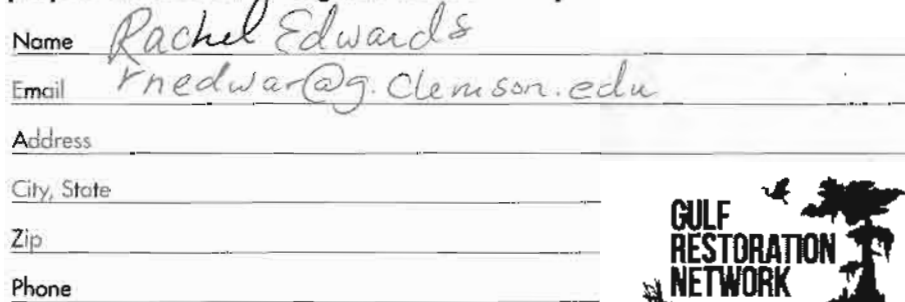 Name Rachel Edwards
Email rnedwar@g.clemson.edu
Address
City, State
Zip
Phone
GULF
RESTORATION
NETWORK